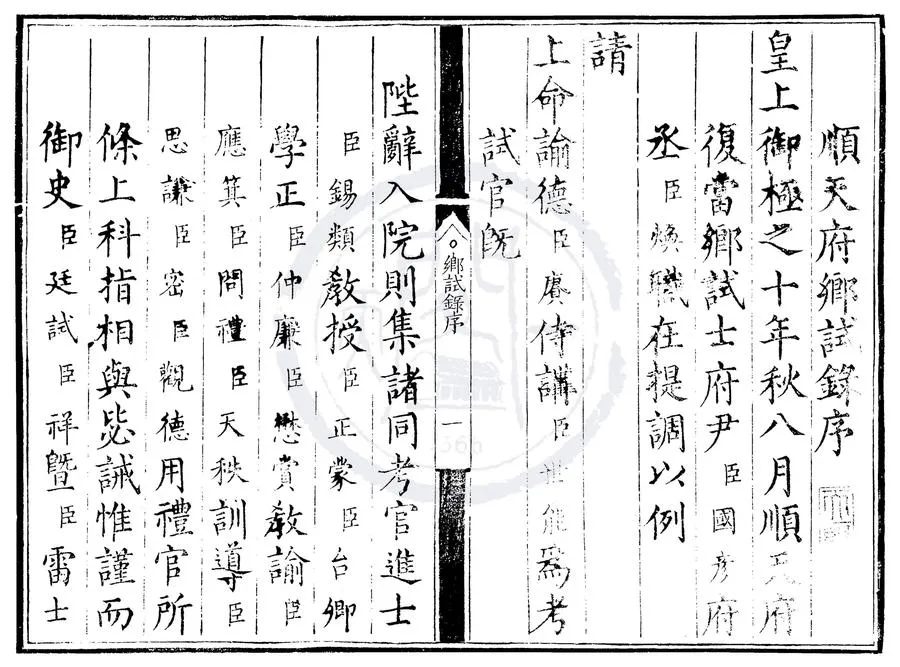 順天府鄉試錄序
皇上御極之十年秋八月順天府
復當鄉試士府尹臣國彥府
丞臣煥職在提調以例
請
上命諭德臣賡侍講臣世能為考
試官旣
鄉試錄序
一
陛辭入院則集諸同考官進士
臣錫類教授臣正蒙臣台卿
學正臣仲廉臣懋賞教諭臣
應箕臣問禮臣天秩訓導臣
思謙臣密臣觀德用禮官所
條上科指相與毖誡惟謹而
御史臣廷試臣祥暨臣雷士